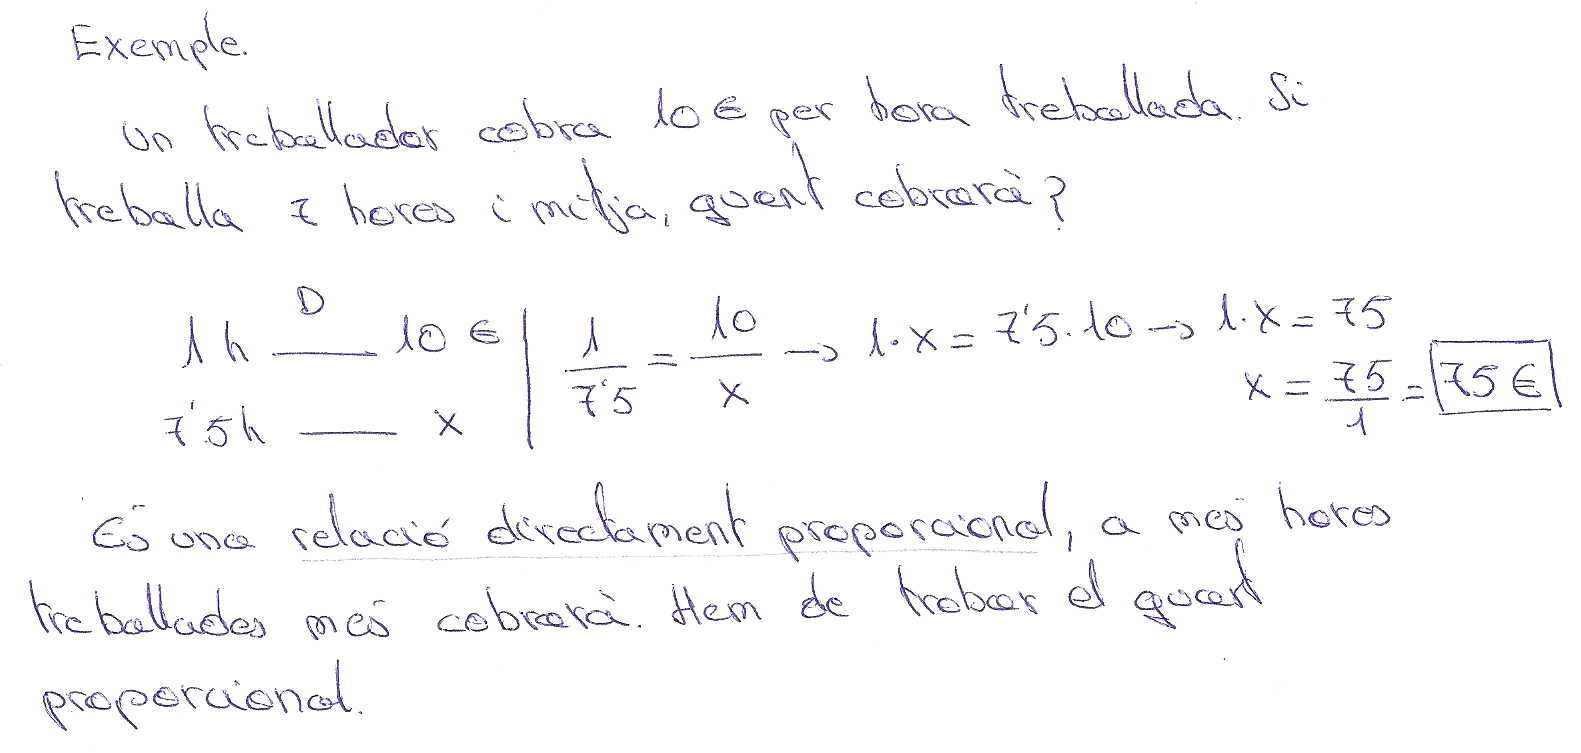 Exemple.
Un treballador cobra 10 € per hora treballada. Si
treballa 7 hores i mitja, quant cobrarà?
D
1 h —— 10 € | 1/7'5 = 10/x → 1·x = 7'5·10 → 1·x = 75
7'5h —— x
x = 75/1 = 75 €
És una relació directament proporcional, a més hores
treballades més cobrarà. Hem de trobar el quart
proporcional.